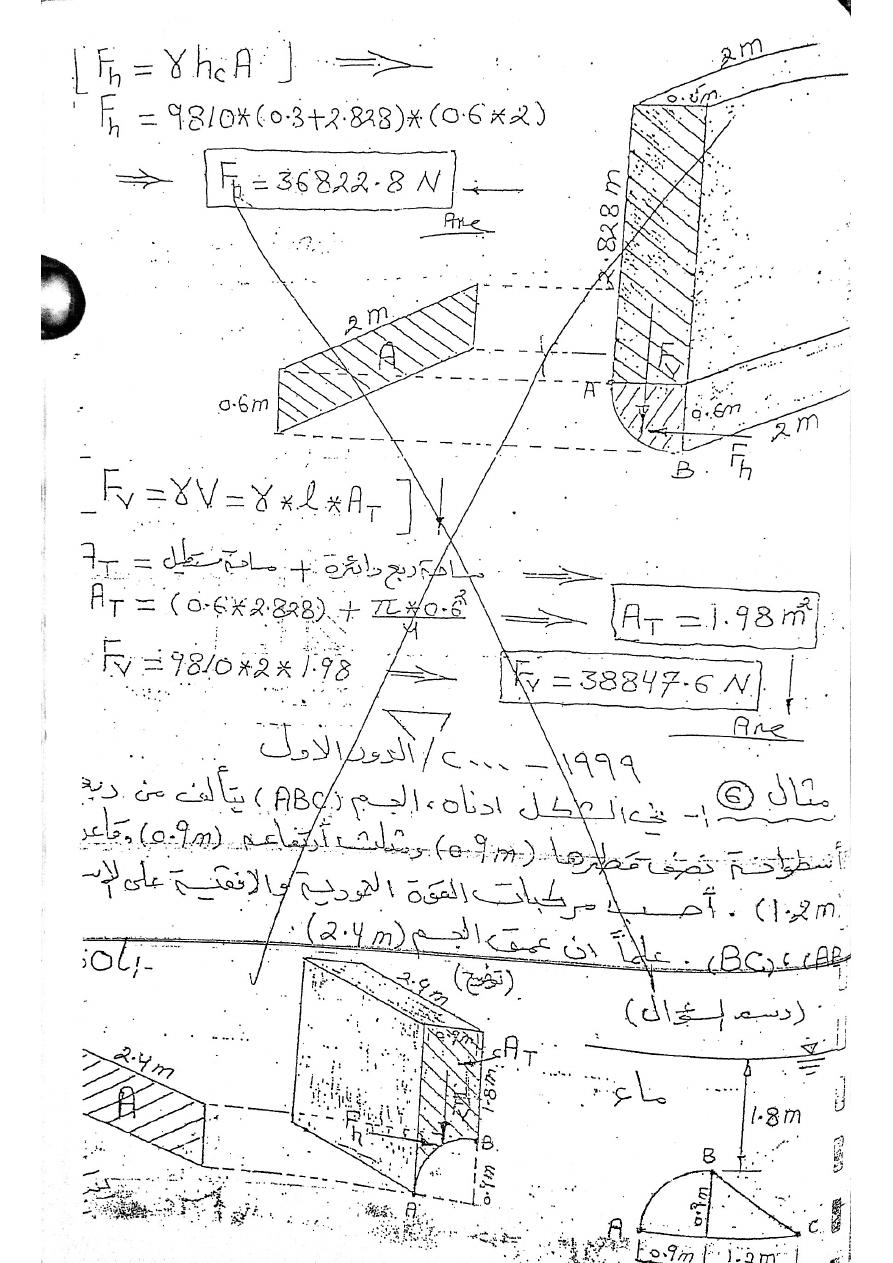 [ Fh = γ hc A ] ⟹
2m
Fh = 9810*(0.3+2.828)*(0.6*2)
⟹ Fh = 36822.8 N
Ans
2.828 m
2m
A
0.6m
Fv
A
0.6m
2m
B
Fh
Fv = γV = γ*l*AT ]
AT = مساحة ربع دائرة + مساحة مستطيل
AT = (0.6*2.828) + π*0.6²/4 ⟹ AT = 1.98 m²
Fv = 9810*2*1.98 ⟹ Fv = 38847.6 N
Ans
1999 - 2000 / الدور الاول
مثال 6 1- في الشكل ادناه، الجسم (ABC) يتألف من ربع
أسطوانة نصف قطرها (0.9m) ومثلث أرتفاعه (0.9m) وقاعد
(1.2m) . أحسب مركبات القوة العمودية والافقية على
(AB) ، (BC) . علماً ان عمق الجسم (2.4m) .
sol/-
(توضيح)
(رسم السؤال)
2.4m
2.4m
0.9m
AT
A
1.8m
Fv
Fh
B
0.9m
A
ماء
1.8m
B
0.9m
A
C
0.9m 1.2m